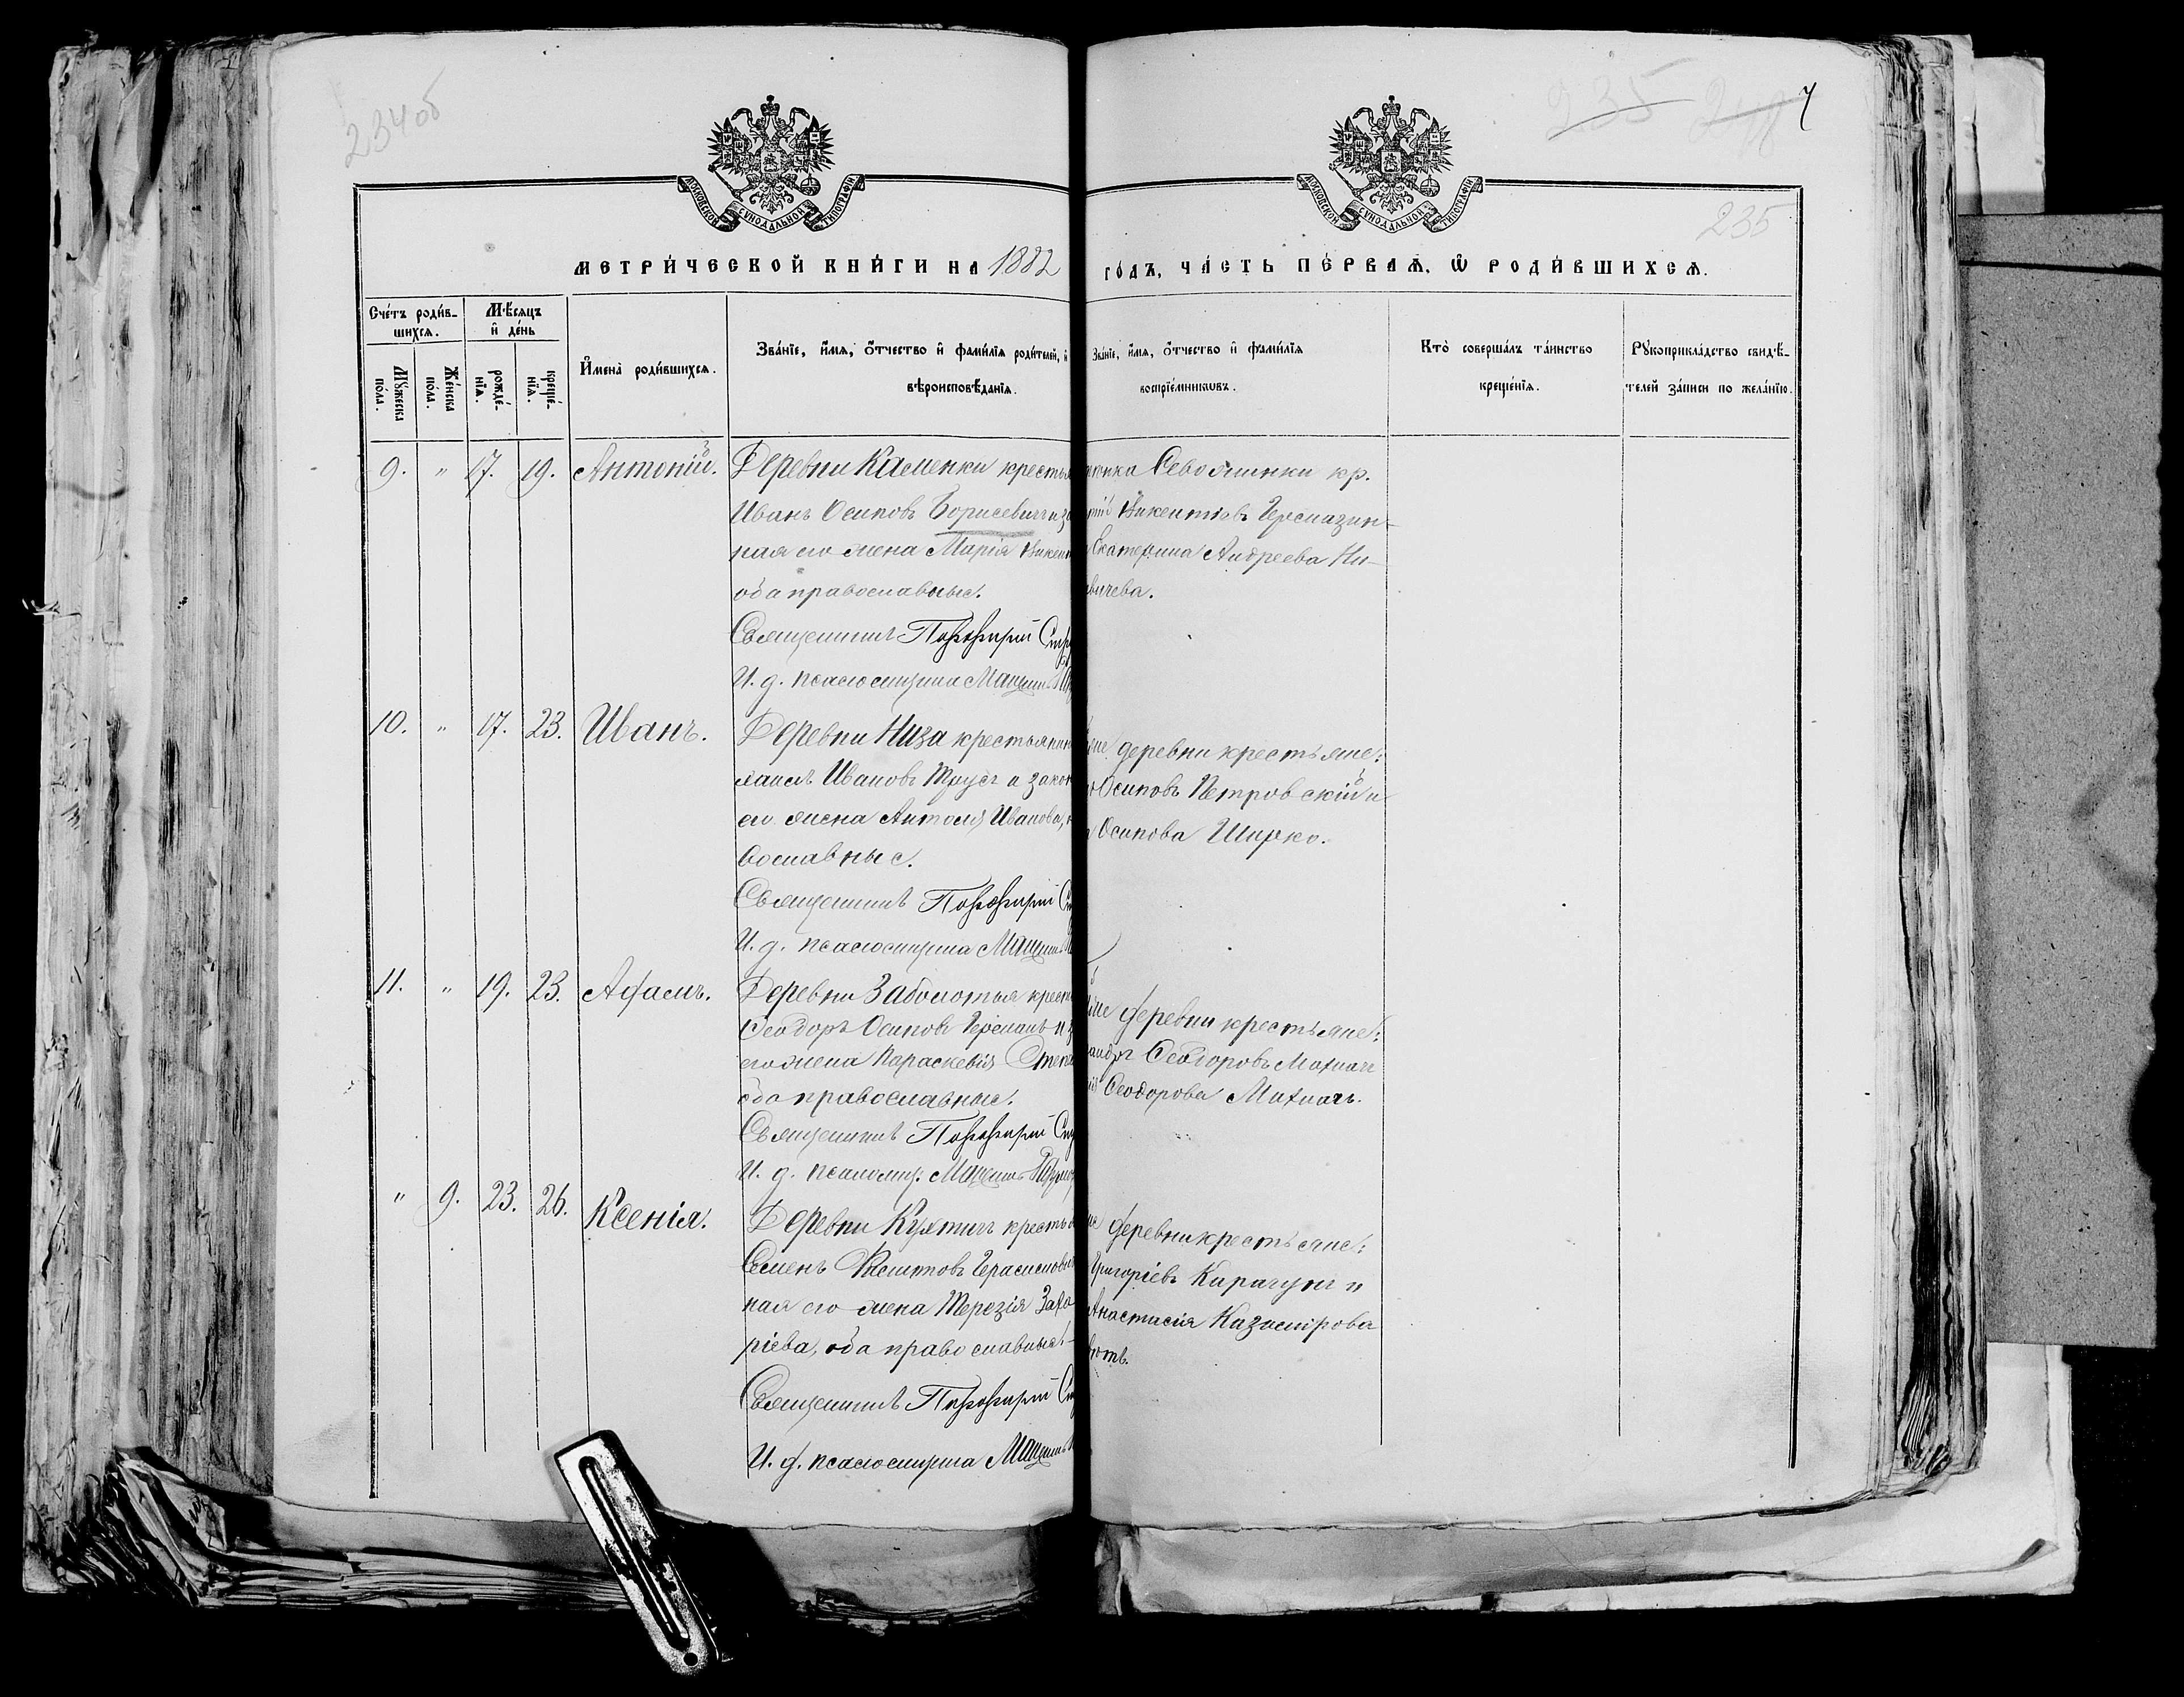 234об
235
7
235
МОСКОВСКОЙ СѴНОДАЛЬНОЙ ТИПОГРАФІИ
МОСКОВСКОЙ СѴНОДАЛЬНОЙ ТИПОГРАФІИ
МЕТРИ́ЧЕСКОЙ КНИ́ГИ НА 1882
ГО́ДЪ, ЧА́СТЬ ПЕ́РВАѦ, Ѡ҆ РОДИ́ВШИХСѦ.
Сче́тъ роди́в-
шихсѧ.
Мѣ́сѧцъ
и҆ де́нь
Мꙋ́жеска
по́ла.
Же́нска
по́ла.
рожде́-
нїѧ.
креще́-
нїѧ.
И҆мена̀ роди́вшихсѧ.
Зва́нїе, и҆́мѧ, ѻ҆́тчество и҆ фами́лїѧ роди́телей, и҆
вѣроисповѣ́данїѧ.
Зва́нїе, и҆́мѧ, ѻ҆́тчество и҆ фами́лїѧ
воспрїе́мникѡвъ.
Кто̀ соверша́лъ та́инство
креще́нїѧ.
Рꙋкоприкла́дство свидѣ́-
телей за́писи по жела́нїю.
9. " 17. 19. Антоній. Деревни Каменки крестья
Иванъ Осиповъ Борисевичъ и за
ная его жена Марія Викент
оба православные.
Священникъ Порфирій
И. д. псаломщика
кр.
Викентіевъ
Екатерина Андреева Ни-
вичева.
10. " 17. 23. Иванъ. Деревни Низа крестьянин
Ивановъ Трусъ и закон
его жена Антоля Иванова,
вославные.
Священникъ Порфирій
И. д. псаломщика
деревни крестьяне:
Осиповъ Петровскій и
Осипова Ширко.
11. " 19. 23. Адамъ. Деревни Заболотья крест
Ѳеодоръ Осиповъ Германъ и з
его жена Параскевія Степа
оба православные.
Священникъ Порфирій
И. д. псаломщ.
деревни крестьяне:
Ѳеодоровъ Махначъ
Ѳеодорова Махначъ.
" 9. 23. 26. Ксенія. Деревни Кухтичъ крестья
Семенъ Герасимович
ная его жена Терезія Заха
ріева, оба православные
Священникъ Порфирій
И. д. псаломщика
деревни крестьяне:
Григоріевъ Карачунъ и
Анастасія Казимірова